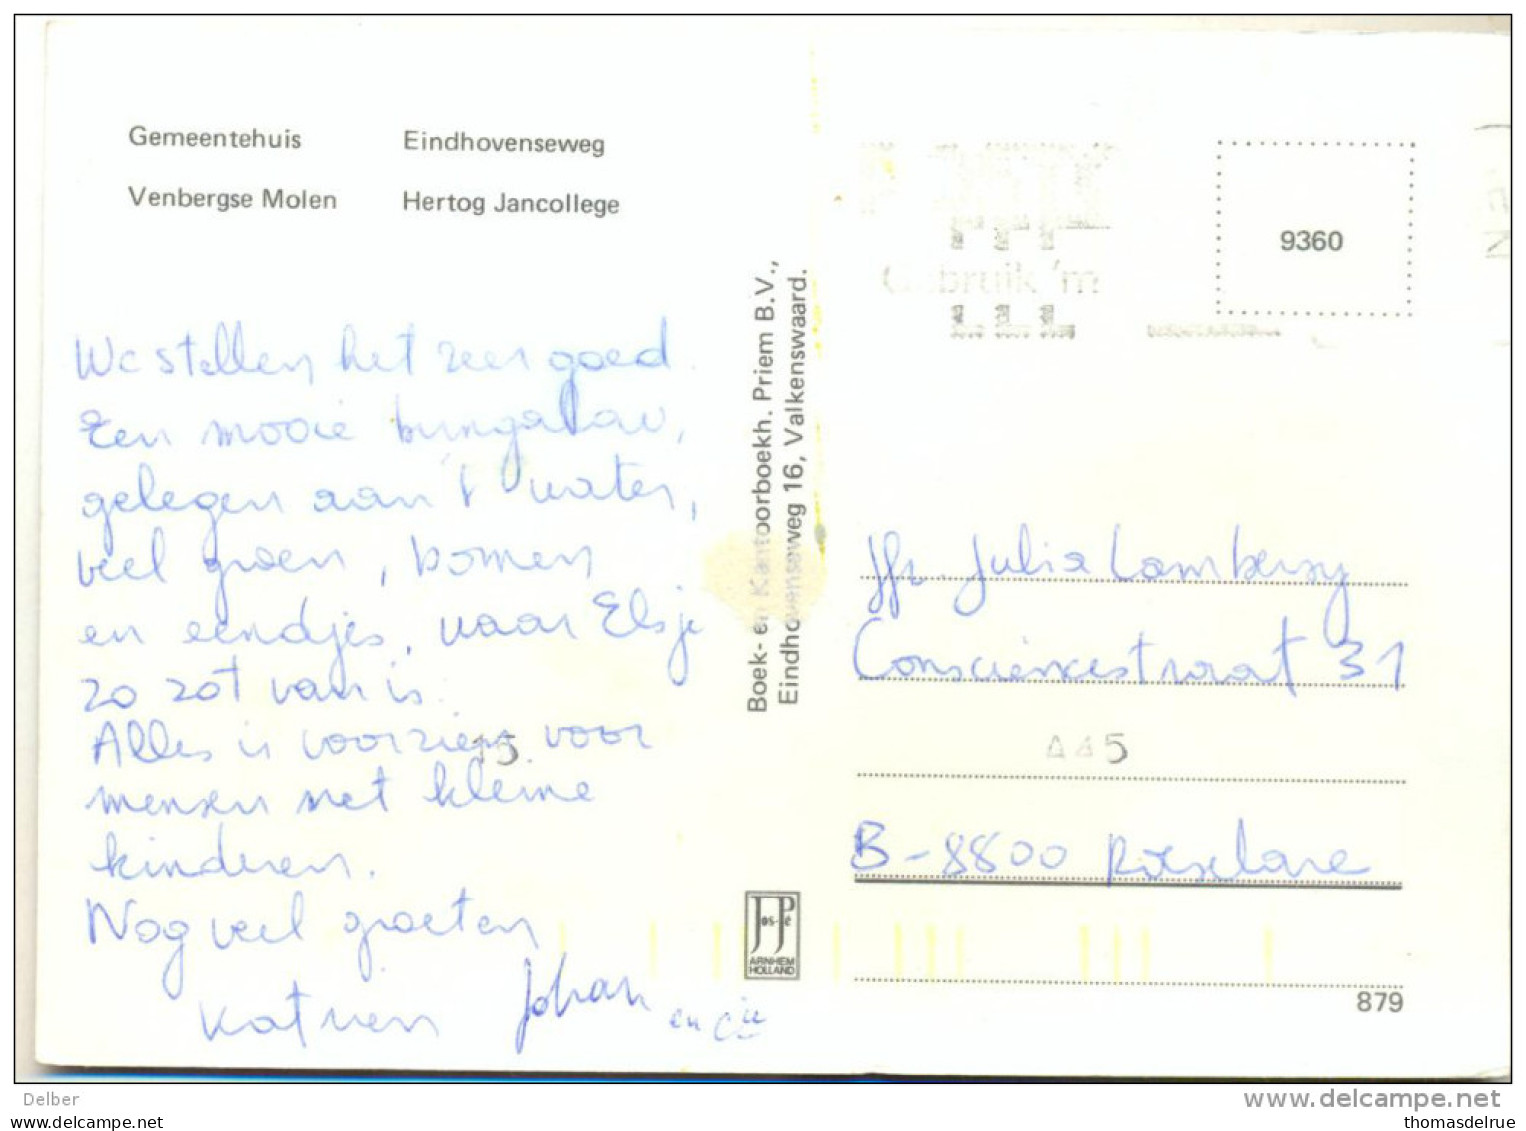 Gemeentehuis
Eindhovenseweg
Venbergse Molen
Hertog Jancollege
We stellen het zeer goed.
Een mooie bungalow,
gelegen aan 't water,
veel groen, bomen
en eendjes, waar Elsje
zo zot van is.
Alles is voorzien voor
mensen met kleine
kinderen.
Nog veel groeten
Katrien Johan en Cie
15
Boek- en Kantoorboekh. Priem B.V.,
Eindhovenseweg 16, Valkenswaard.
Jos-Pé
ARNHEM
HOLLAND
Gebruik 'm
9360
Jfr. Julia Lambersy
Consciencestraat 31
445
B-8800 Roeselare
879
Delber
www.delcampe.net
www.delcampe.net
thomasdelrue